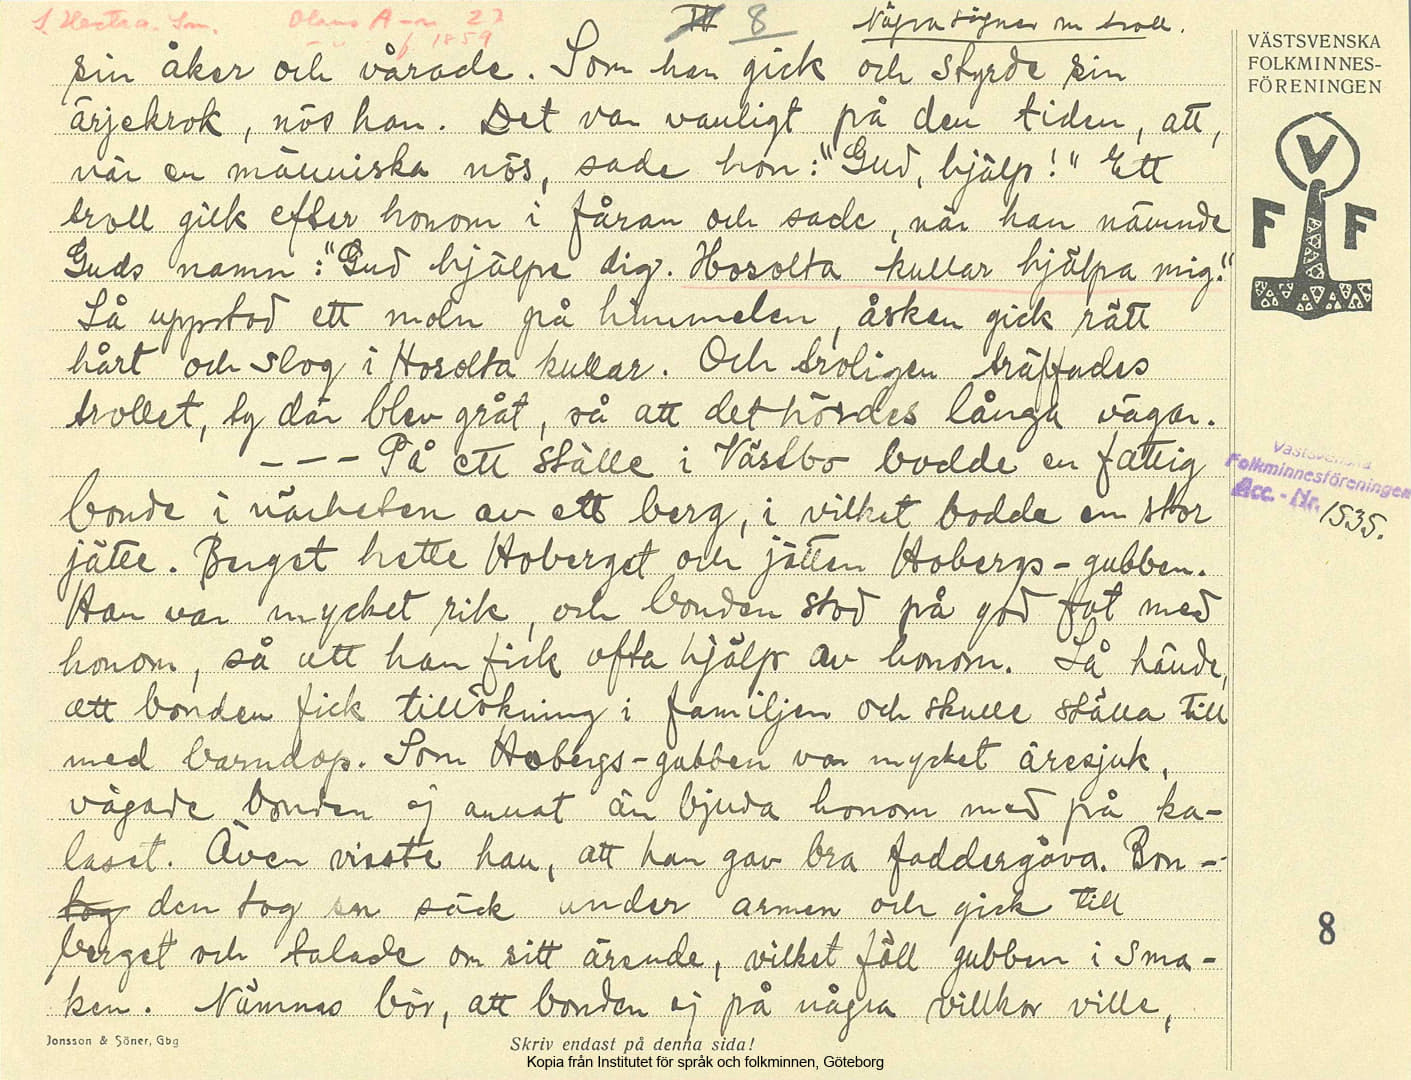 S. Hestra. Sm.
Olaus A-n 27
f 1859
8
Några sägner om troll.
VÄSTSVENSKA
FOLKMINNES-
FÖRENINGEN
V
F F
sin åker och vårade. Som han gick och styrde sin
ärjekrok, nös han. Det var vanligt på den tiden, att,
när en människa nös, sade hon: "Gud, hjälp!" Ett
troll gick efter honom i fåran och sade, när han nämnde
Guds namn: "Gud hjälpe dig. Hosolta kullar hjälpa mig."
Så uppstod ett moln på himmelen, åsken gick rätt
hårt och slog i Hosolta kullar. Och troligen träffades
trollet, ty där blev gråt, så att det hördes långa vägar.
--- På ett ställe i Västbo bodde en fattig
bonde i närheten av ett berg, i vilket bodde en stor
jätte. Berget hette Hoberget och jätten Hobergs-gubben.
Han var mycket rik, och bonden stod på god fot med
honom, så att han fick ofta hjälp av honom. Så hände,
att bonden fick tillökning i familjen och skulle ställa till
med barndop. Som Hobergs-gubben var mycket äresjuk,
vågade bonden ej annat än bjuda honom med på ka-
laset. Även visste han, att han gav bra faddergåva. Bon-
tog den tog en säck under armen och gick till
berget och talade om sitt ärende, vilket föll gubben i sma-
ken. Nämnas bör, att bonden ej på några villkor ville,
Västsvenska
Folkminnesföreningen
Acc.-Nr. 1535.
8
Jonsson & Söner, Gbg
Skriv endast på denna sida!
Kopia från Institutet för språk och folkminnen, Göteborg